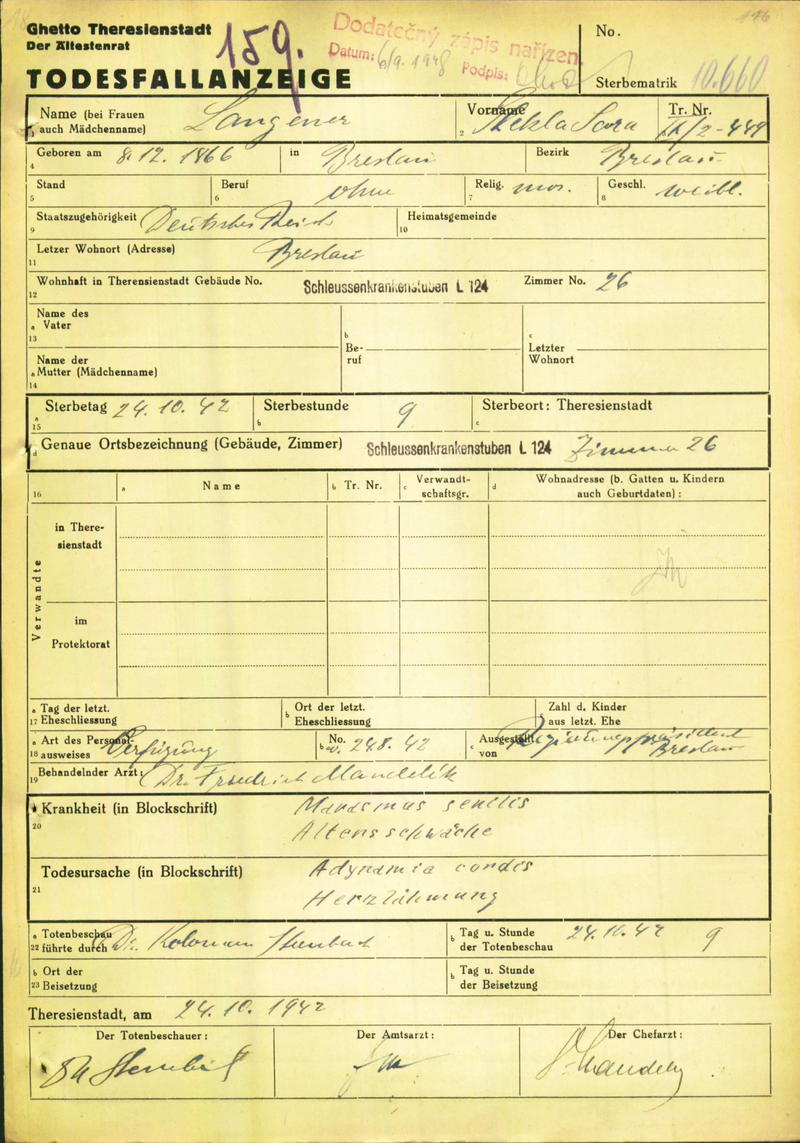 Ghetto Theresienstadt
Der Ältestenrat
159.
Dodatečný zápis nařízen
Datum: 6/9. 1948 Podpis:
No.
TODESFALLANZEIGE
Sterbematrik 10.660
Name (bei Frauen auch Mädchenname) Langener
1
Vorname Thekla Sara
2
Tr. Nr. IX/2-449
Geboren am 8.12. 1866 in Breslau Bezirk Breslau
4
Stand Beruf ohne Relig. mos. Geschl. weibl.
5 6 7 8
Staatszugehörigkeit Deutsches Reich Heimatsgemeinde
9 10
Letzer Wohnort (Adresse) Breslau
11
Wohnhaft in Therensienstadt Gebäude No. Schleussenkrankenstuben L 124 Zimmer No. 26
12
Name des
a Vater
13
b
Be-
ruf
c
Letzter
Wohnort
Name der
a Mutter (Mädchenname)
14
Sterbetag 24.10.42 Sterbestunde 9 Sterbeort: Theresienstadt
a 15 b c
d Genaue Ortsbezeichnung (Gebäude, Zimmer) Schleussenkrankenstuben L 124 Zimmer 26
16 a Name b Tr. Nr. c Verwandt-
schaftsgr. d Wohnadresse (b. Gatten u. Kindern
auch Geburtdaten) :
Verwandte
in There-
sienstadt
im
Protektorat
a Tag der letzt.
17 Eheschliessung
b Ort der letzt.
Eheschliessung
c Zahl d. Kinder
aus letzt. Ehe
a Art des Personal-
18 ausweises Verfügung
b No. v. 24.8. 42
c Ausgestellt
von Regierungspräsident
Breslau
19 Behandelnder Arzt: Dr. Friedrich Mandelik
Krankheit (in Blockschrift) Marasmus senilis
20 Altersschwäche
Todesursache (in Blockschrift) Adynamia cordis
21 Herzlähmung
a Totenbeschau
22 führte durch Dr. Koloman
b Tag u. Stunde
der Totenbeschau 24.10.42 9
b Ort der
23 Beisetzung
b Tag u. Stunde
der Beisetzung
Theresienstadt, am 24.10.1942
Der Totenbeschauer: Der Amtsarzt: Der Chefarzt: